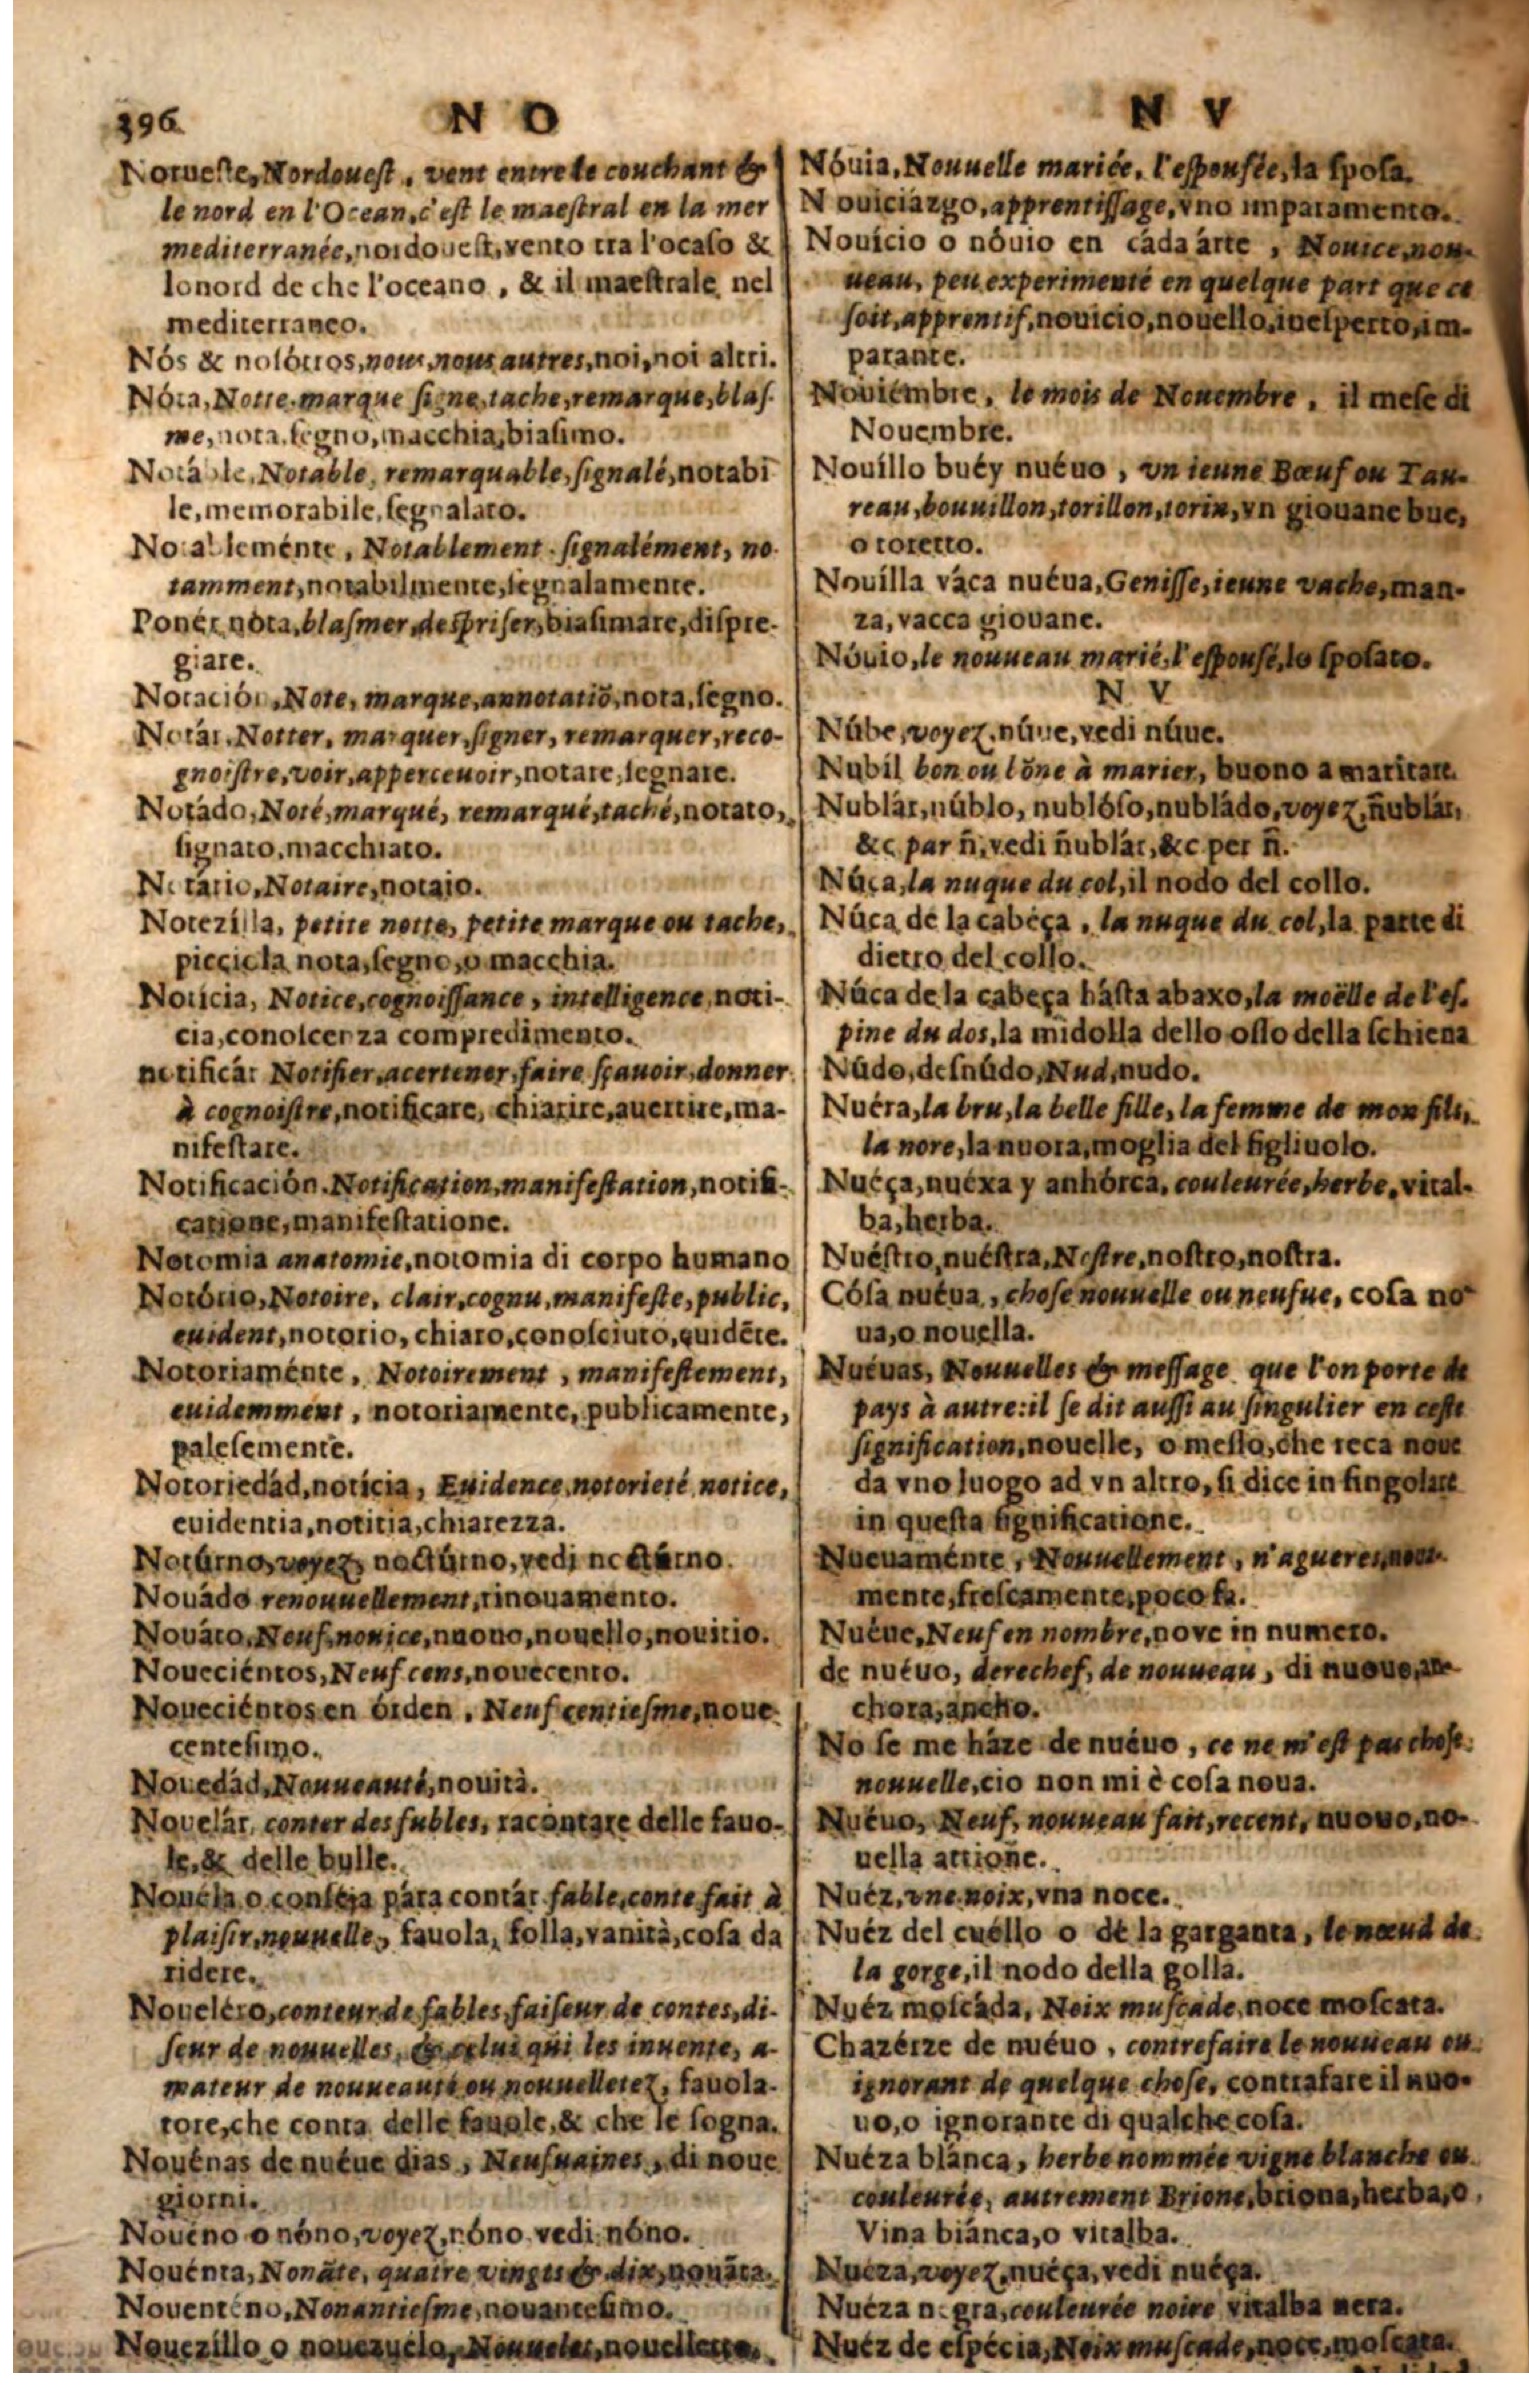 396 N O
Norueste, Nordouest, vent entre le couchant &
le nord en l'Ocean, c'est le maestral en la mer
mediterranée, nordouest, vento tra l'ocaso &
lonord de che l'oceano, & il maestrale nel
mediterraneo.
Nós & nosótros, nous, nous autres, noi, noi altri.
Nóta, Notte, marque signe, tache, remarque, blas-
me, nota, segno, macchia, biasimo.
Notáble, Notable, remarquable, signalé, notabi
le, memorabile, segnalato.
Notableménte, Notablement, signalément, no-
tamment, notabilmente, segnalamente.
Ponér nòta, blasmer, despriser, biasimare, dispre-
giare.
Notación, Note, marque, annotatiõ, nota, segno.
Notár, Notter, marquer, signer, remarquer, reco-
gnoistre, voir, appercevoir, notare, segnare.
Notádo, Noté, marqué, remarqué, taché, notato,
signato, macchiato.
Notário, Notaire, notaio.
Notezílla, petite notte, petite marque ou tache,
picciola nota, segno, o macchia.
Notícia, Notice, cognoissance, intelligence, noti-
cia, conoscenza compredimento.
notificár Notifier, acertener, faire sçauoir, donner
à cognoistre, notificare, chiarire, auertire, ma-
nifestare.
Notificación. Notification, manifestation, notifi-
catione, manifestatione.
Notomia anatomie, notomia di corpo humano
Notório, Notoire, clair, cognu, manifeste, public,
euident, notorio, chiaro, conosciuto, euidẽte.
Notoriaménte, Notoirement, manifestement,
euidemment, notoriamente, publicamente,
palesemente.
Notoriedád, notícia, Euidence, notorieté notice,
euidentia, notitia, chiarezza.
Notúrno, voyez, noctúrno, vedi noctúrno.
Nouádo renouuellement, rinouamento.
Nouáto, Neuf, nouice, nuouo, nouello, nouitio.
Noueciéntos, Neuf cens, novecento.
Noueciéntos en órden, Neuf centiesme, noue-
centesimo.
Nouedád, Nouueauté, nouità.
Nouelár, conter des fables, racontare delle fauo-
le, & delle bulle.
Nouéla o conséja pára contár fable, conte fait à
plaisir, nouuelle, fauola, folla, vanità, cosa da
ridere.
Noueléro, conteur de fables, faiseur de contes, di-
seur de nouuelles, & celui qui les inuente, a-
mateur de nouueauté ou nouuelletez, fauola-
tore, che conta delle fauole, & che le sogna.
Nouénas de nuéue dias, Neufuaines, di noue
giorni.
Nouéno o nóno, voyez, nóno vedi nóno.
Nouénta, Nonãte, quatre vingts & dix, nouãta.
Nouenténo, Nonantiesme, nouantesimo.
Nouezíllo o nouezuélo, Nouuelet, nouelletto.
N V
Nóuia, Nouuelle mariée, l'espousée, la sposa.
Nouiciázgo, apprentissage, vno imparamento.
Nouício o nóuio en cáda árte, Nouice, nou-
ueau, peu experimenté en quelque part que ce
soit, apprentif, nouicio, nouello, inesperto, im-
parante.
Nouiémbre, le mois de Nouembre, il mese di
Nouembre.
Nouíllo buéy nuéuo, vn ieune Bœuf ou Tau-
reau, bouuillon, torillon, torin, vn giouane bue,
o toretto.
Nouílla váca nuéua, Genisse, ieune vache, man-
za, vacca giouane.
Nóuio, le nouueau marié, l'espousé, lo sposato.
N V
Núbe, voyez, núue, vedi núue.
Nubíl bon ou bõne à marier, buono a maritare.
Nublár, núblo, nublóso, nubládo, voyez, ñublár,
&c par ñ, vedi ñublár, &c per ñ.
Núca, la nuque du col, il nodo del collo.
Núca de la cabéça, la nuque du col, la parte di
dietro del collo.
Núca de la cabeça hásta abaxo, la moëlle de l'es-
pine du dos, la midolla dello osso della schiena
Núdo, desnúdo, Nud, nudo.
Nuéra, la bru, la belle fille, la femme de mon fils,
la nore, la nuora, moglia del figliuolo.
Nuéça, nuéxa y anhórca, couleurée, herbe, vital-
ba, herba.
Nuéstro, nuéstra, Nostre, nostro, nostra.
Cósa nuéua, chose nouuelle ou neufue, cosa no-
ua, o nouella.
Nuéuas, Nouuelles & message que l'on porte de
pays à autre: il se dit aussi au singulier en ceste
signification, nouelle, o messo, che reca nove
da vno luogo ad vn altro, si dice in singolare
in questa significatione.
Nueuaménte, Nouuellement, n'agueres, noua-
mente, frescamente, poco fa.
Nuéue, Neuf en nombre, nove in numero.
de nuéuo, derechef, de nouueau, di nuouo, an-
chora, ancho.
No se me háze de nuéuo, ce ne m'est pas chose
nouuelle, cio non mi è cosa noua.
Nuéuo, Neuf, nouueau fait, recent, nuouo, no-
uella attione.
Nuéz, vne noix, vna noce.
Nuéz del cuéllo o de la garganta, le nœud de
la gorge, il nodo della golla.
Nuéz moscáda, Noix muscade, noce moscata.
Chazérze de nuéuo, contrefaire le nouueau ou
ignorant de quelque chose, contrafare il nuo-
uo, o ignorante di qualche cosa.
Nuéza blánca, herbe nommée vigne blanche ou
couleurée, autrement Brione, briona, herba, o
Vina biánca, o vitalba.
Nuéza, voyez, nuéça, vedi nuéça.
Nuéza negra, couleurée noire vitalba nera.
Nuéz de espécia, Noix muscade, noce, moscata.